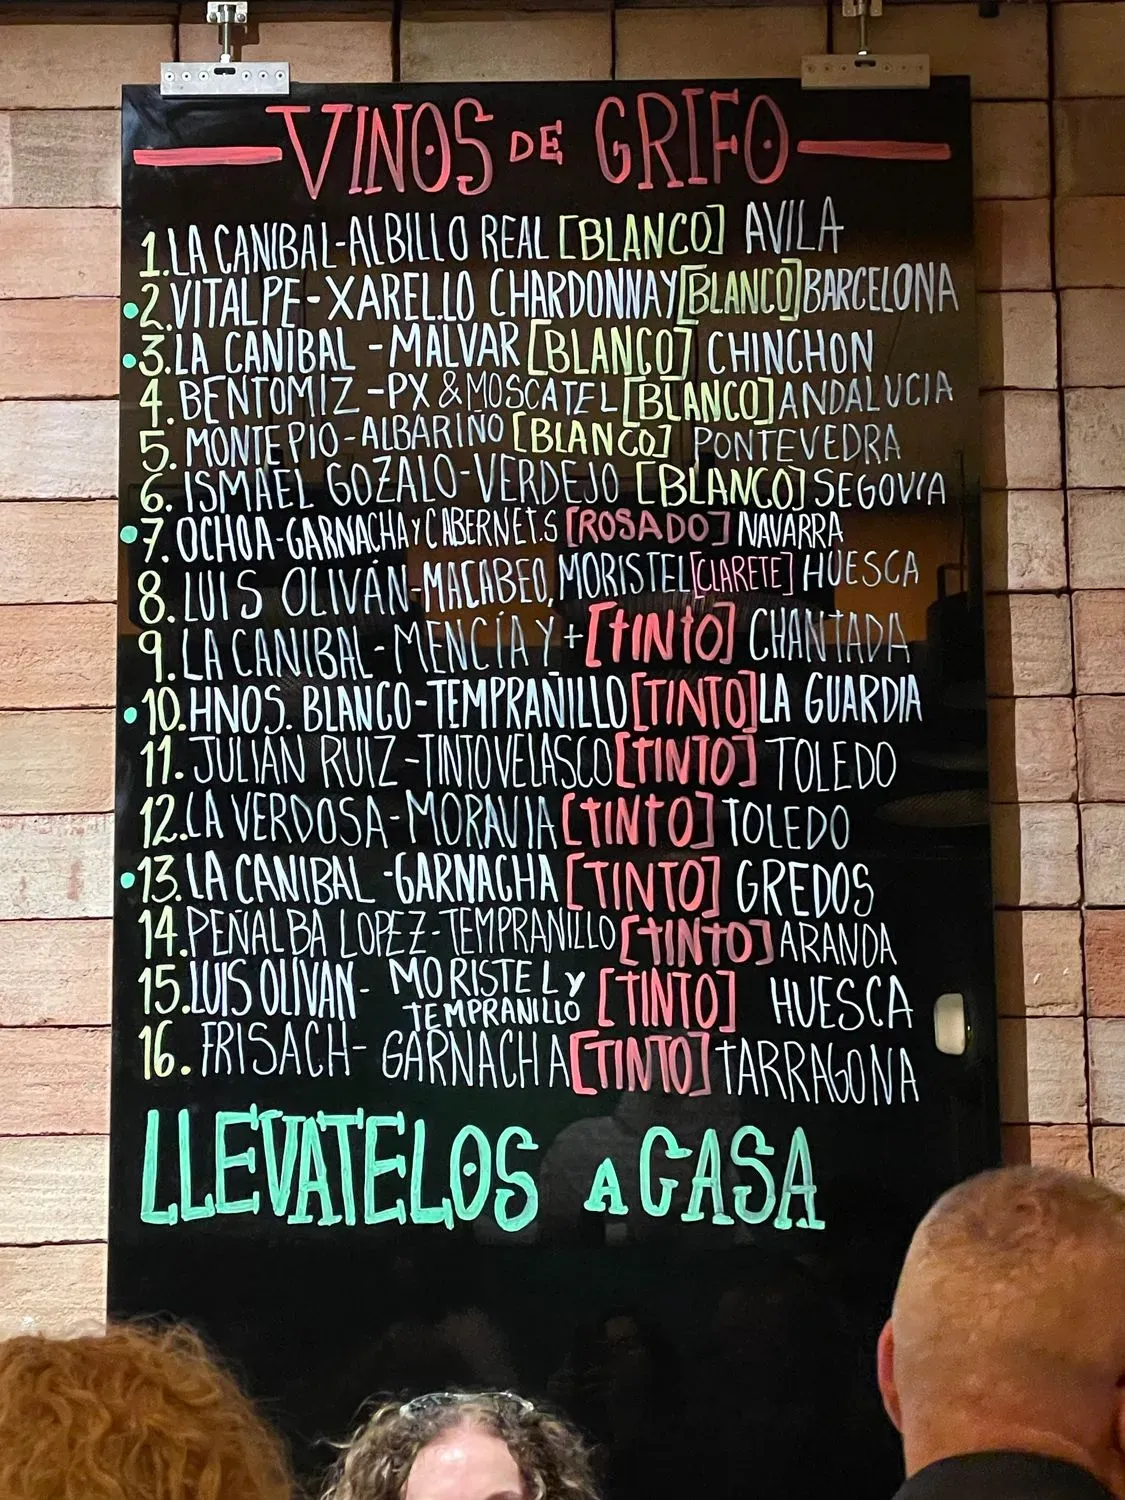 VINOS DE GRIFO
1. LA CANIBAL-ALBILLO REAL [BLANCO] AVILA
• 2. VITALPE-XARELLO CHARDONNAY [BLANCO] BARCELONA
• 3. LA CANIBAL -MALVAR [BLANCO] CHINCHON
4. BENTOMIZ -PX & MOSCATEL [BLANCO] ANDALUCIA
5. MONTEPIO-ALBARIÑO [BLANCO] PONTEVEDRA
6. ISMAEL GOZALO-VERDEJO [BLANCO] SEGOVIA
• 7. OCHOA-GARNACHA Y CABERNET.S [ROSADO] NAVARRA
8. LUIS OLIVÁN-MACABEO, MORISTEL [CLARETE] HUESCA
9. LA CANIBAL-MENCÍA Y + [TINTO] CHANTADA
• 10. HNOS. BLANCO-TEMPRAÑILLO [TINTO] LA GUARDIA
11. JULIÁN RUIZ-TINTO VELASCO [TINTO] TOLEDO
12. LA VERDOSA-MORAVIA [TINTO] TOLEDO
• 13. LA CANIBAL -GARNACHA [TINTO] GREDOS
14. PEÑALBA LOPEZ-TEMPRANILLO [TINTO] ARANDA
15. LUIS OLIVAN- MORISTEL Y TEMPRANILLO [TINTO] HUESCA
16. FRISACH- GARNACHA [TINTO] TARRAGONA
LLEVATELOS A CASA